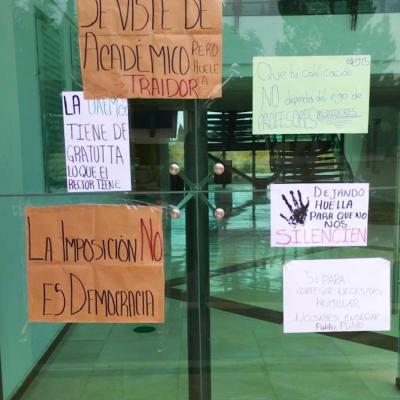 SE VISTE DE
ACADÉMICO PERO
HUELE
A
TRAIDOR
Que tu calificación
NO dependa del ego de
PROFESORES MEDIOCRES
LA UAEMex
TIENE DE
GRATUITA
LO QUE EL
RECTOR TIENE
DEJANDO
HUELLA
PARA QUE NO
NOS
SILENCIEN
LA IMPOSICIÓN NO
ES DEMOCRACIA
SI PARA
CORREGIR NECESITAS
HUMILLAR
NO SABES ENSEÑAR
Pablo Pueblo